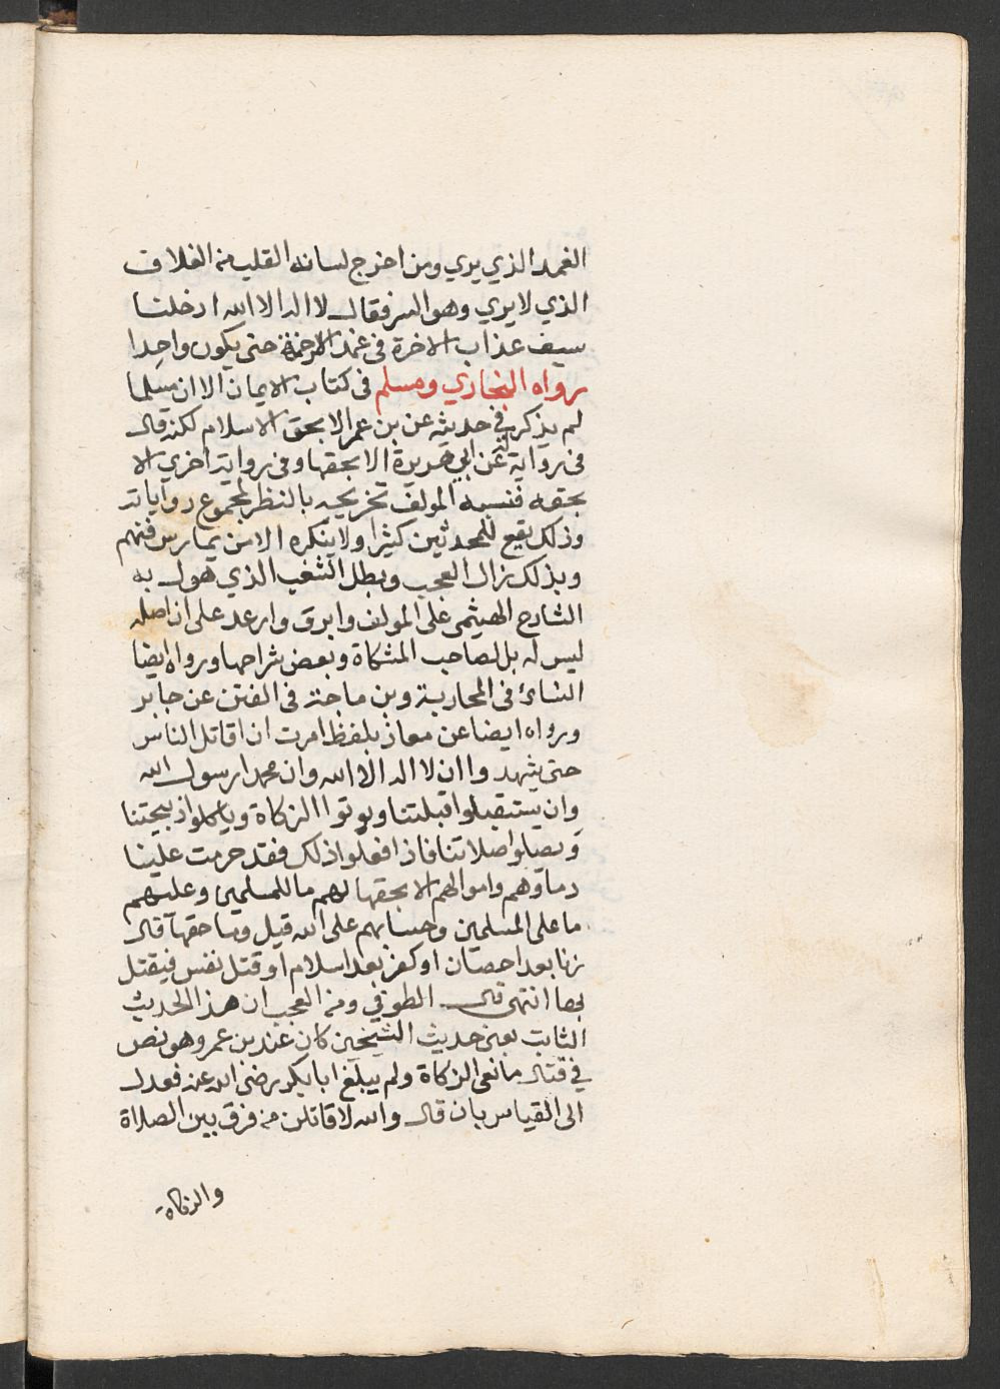 الغمد الذي يري ومن اخرج لسانه القلب من الغلاف
الذي لا يري وهو السر فقال لا اله الا الله ادخلنا
سيف عذاب الاخرة في غمد الرحمة حتى يكون واحدا
رواه البخاري ومسلم في كتاب الايمان الا ان مسلما
لم يذكر في حديثه عن بن عمر الا بحق الاسلام لكنه قال
في رواية عن ابي هريرة الا بحقها وفي رواية اخري الا
بحقه فنسبه المولف تخريجه بالنظر لمجموع رواياته
وذلك يقع للمحدثين كثيرا ولا ينكره الا من يمارس فنهم
وبذلك زال العجب وبطل الشغب الذي هول به
الشارح الهيثمي على المولف وابرق وارعد على ان اصله
ليس له بل لصاحب المشكاة وبعض شراحها ورواه ايضا
النسائ في المحاربة وبن ماجة في الفتن عن جابر
ورواه ايضا عن معاذ بلفظ امرت ان اقاتل الناس
حتى يشهدوا ان لا اله الا الله وان محمدا رسول الله
وان يستقبلوا قبلتنا ويوتوا الزكاة وياكلوا ذبيحتنا
ويصلوا صلاتنا فاذا فعلوا ذلك فقد حرمت علينا
دماوهم واموالهم الا بحقها لهم ما للمسلمين وعليهم
ما على المسلمين وحسابهم على الله قيل وما حقها قال
زنا بعد احصان او كفر بعد اسلام او قتل نفس فيقتل
بها انتهى قال الطوفي ومن العجب ان هذا الحديث
الثابت يعني حديث الشيخين كان عند بن عمر وهو نص
في قتال مانعي الزكاة ولم يبلغ ابا بكر رضي الله عنه فعدل
الى القياس بان قال والله لاقاتلن من فرق بين الصلاة
والزكاة